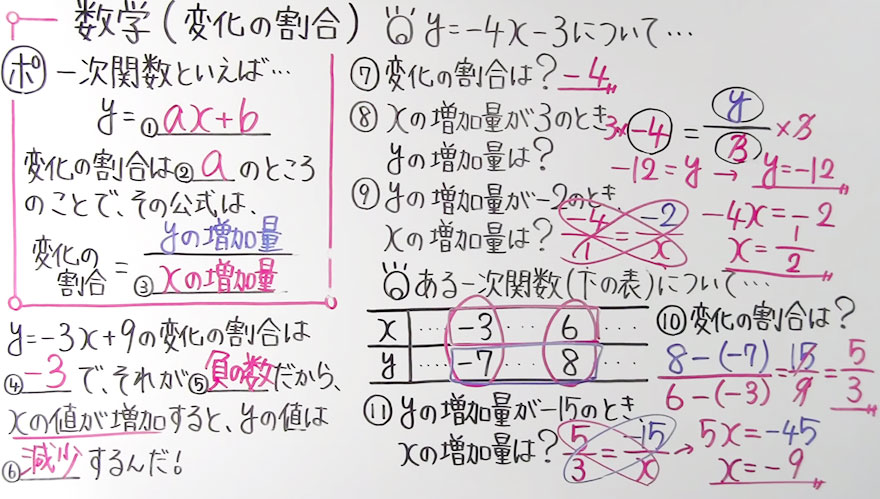 数学(変化の割合)
ポ 一次関数といえば…
y=①ax+b
変化の割合は②aのところ
のことで、その公式は、
変化の割合=yの増加量/③xの増加量
y=-3x+9の変化の割合は
④-3で、それが⑤負の数だから、
xの値が増加すると、yの値は
⑥減少するんだ!
y=-4x-3について…
⑦変化の割合は? -4
⑧xの増加量が3のとき
yの増加量は?
3×-4=y/3×3
-12=y→y=-12
⑨yの増加量が-2のとき、
xの増加量は?
-4/1=-2/x
-4x=-2
x=1/2
ある一次関数(下の表)について…
x … -3 … 6 …
y … -7 … 8 …
⑩変化の割合は?
8-(-7)/6-(-3)=15/9=5/3
⑪yの増加量が-15のとき
xの増加量は?
5/3=-15/x→5x=-45
x=-9